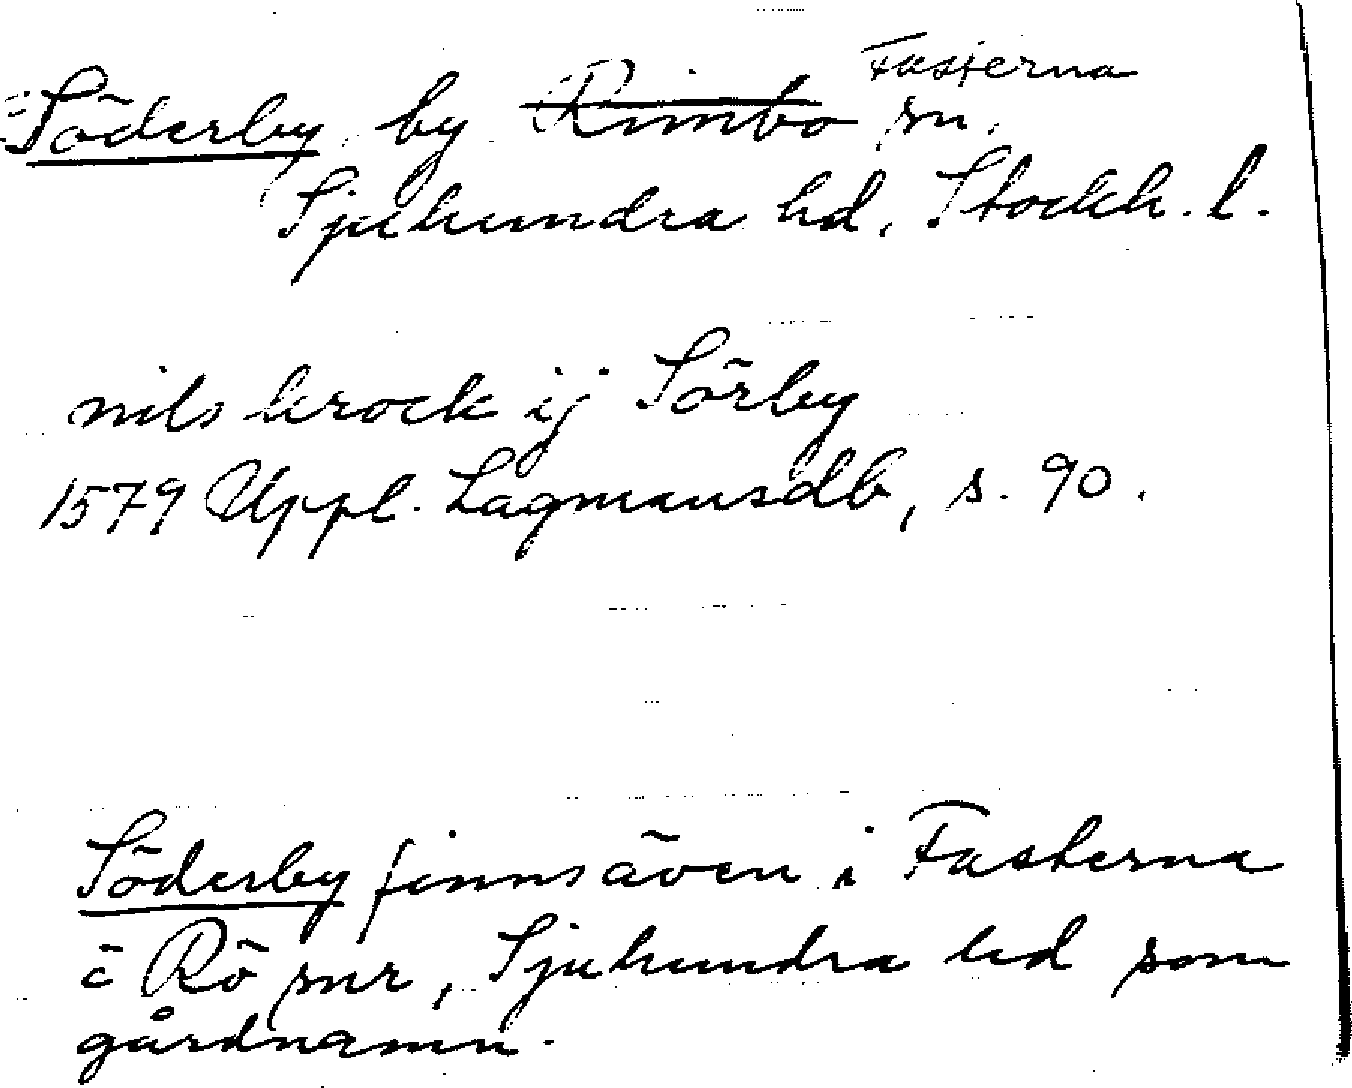 Söderby by Rimbo Fasterna sn.
Sjuhundra hd. Stockh. l.
nils krock ij Sörby
1579 Uppl. Lagmansdb, s. 90.
Söderby finns även i Fasterna
o Rö snr, Sjuhundra hd som
gårdnamn.